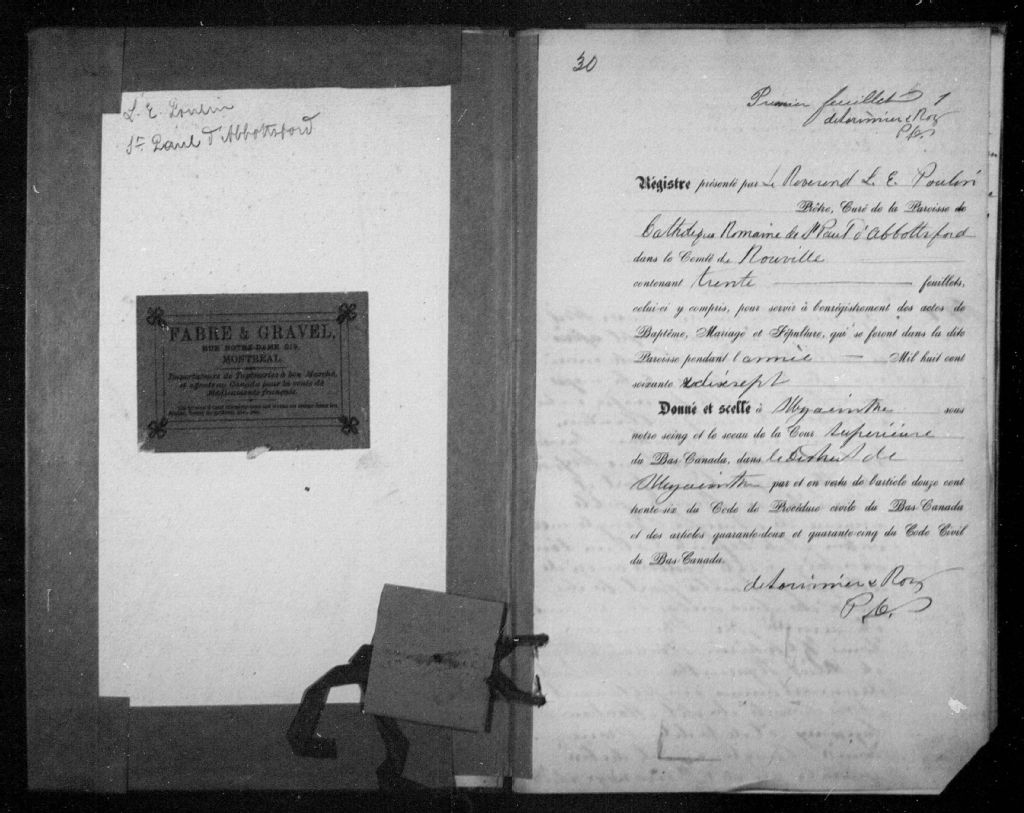 L. E. Poulin
St. Paul d'Abbottsford
FABRE & GRAVEL,
RUE NOTRE-DAME 219,
MONTREAL.
Importateurs de Papeteries à bon Marché,
et agents au Canada pour la vente de
Médicaments français.
30
Premier feuillet 1
de Lorimier & Roy
P.C.S.
Régistre présenté par Le Reverend L. E. Poulin
Prêtre, Curé de la Paroisse de
Catholique Romaine de St Paul d'Abbottsford
dans le Comté de Rouville
contenant trente feuillets,
celui-ci y compris, pour servir à l'enrégistrement des actes de
Baptême, Mariage et Sépulture, qui se feront dans la dite
Paroisse pendant l'année Mil huit cent
soixante & dix sept
Donné et scellé à St Hyacinthe sous
notre seing et le sceau de la Cour Supérieure
du Bas-Canada, dans le District de
St Hyacinthe par et en vertu de l'article douze cent
trente-six du Code de Procédure civile du Bas-Canada
et des articles quarante-deux et quarante-cinq du Code Civil
du Bas-Canada.
de Lorimier & Roy
P.C.S.